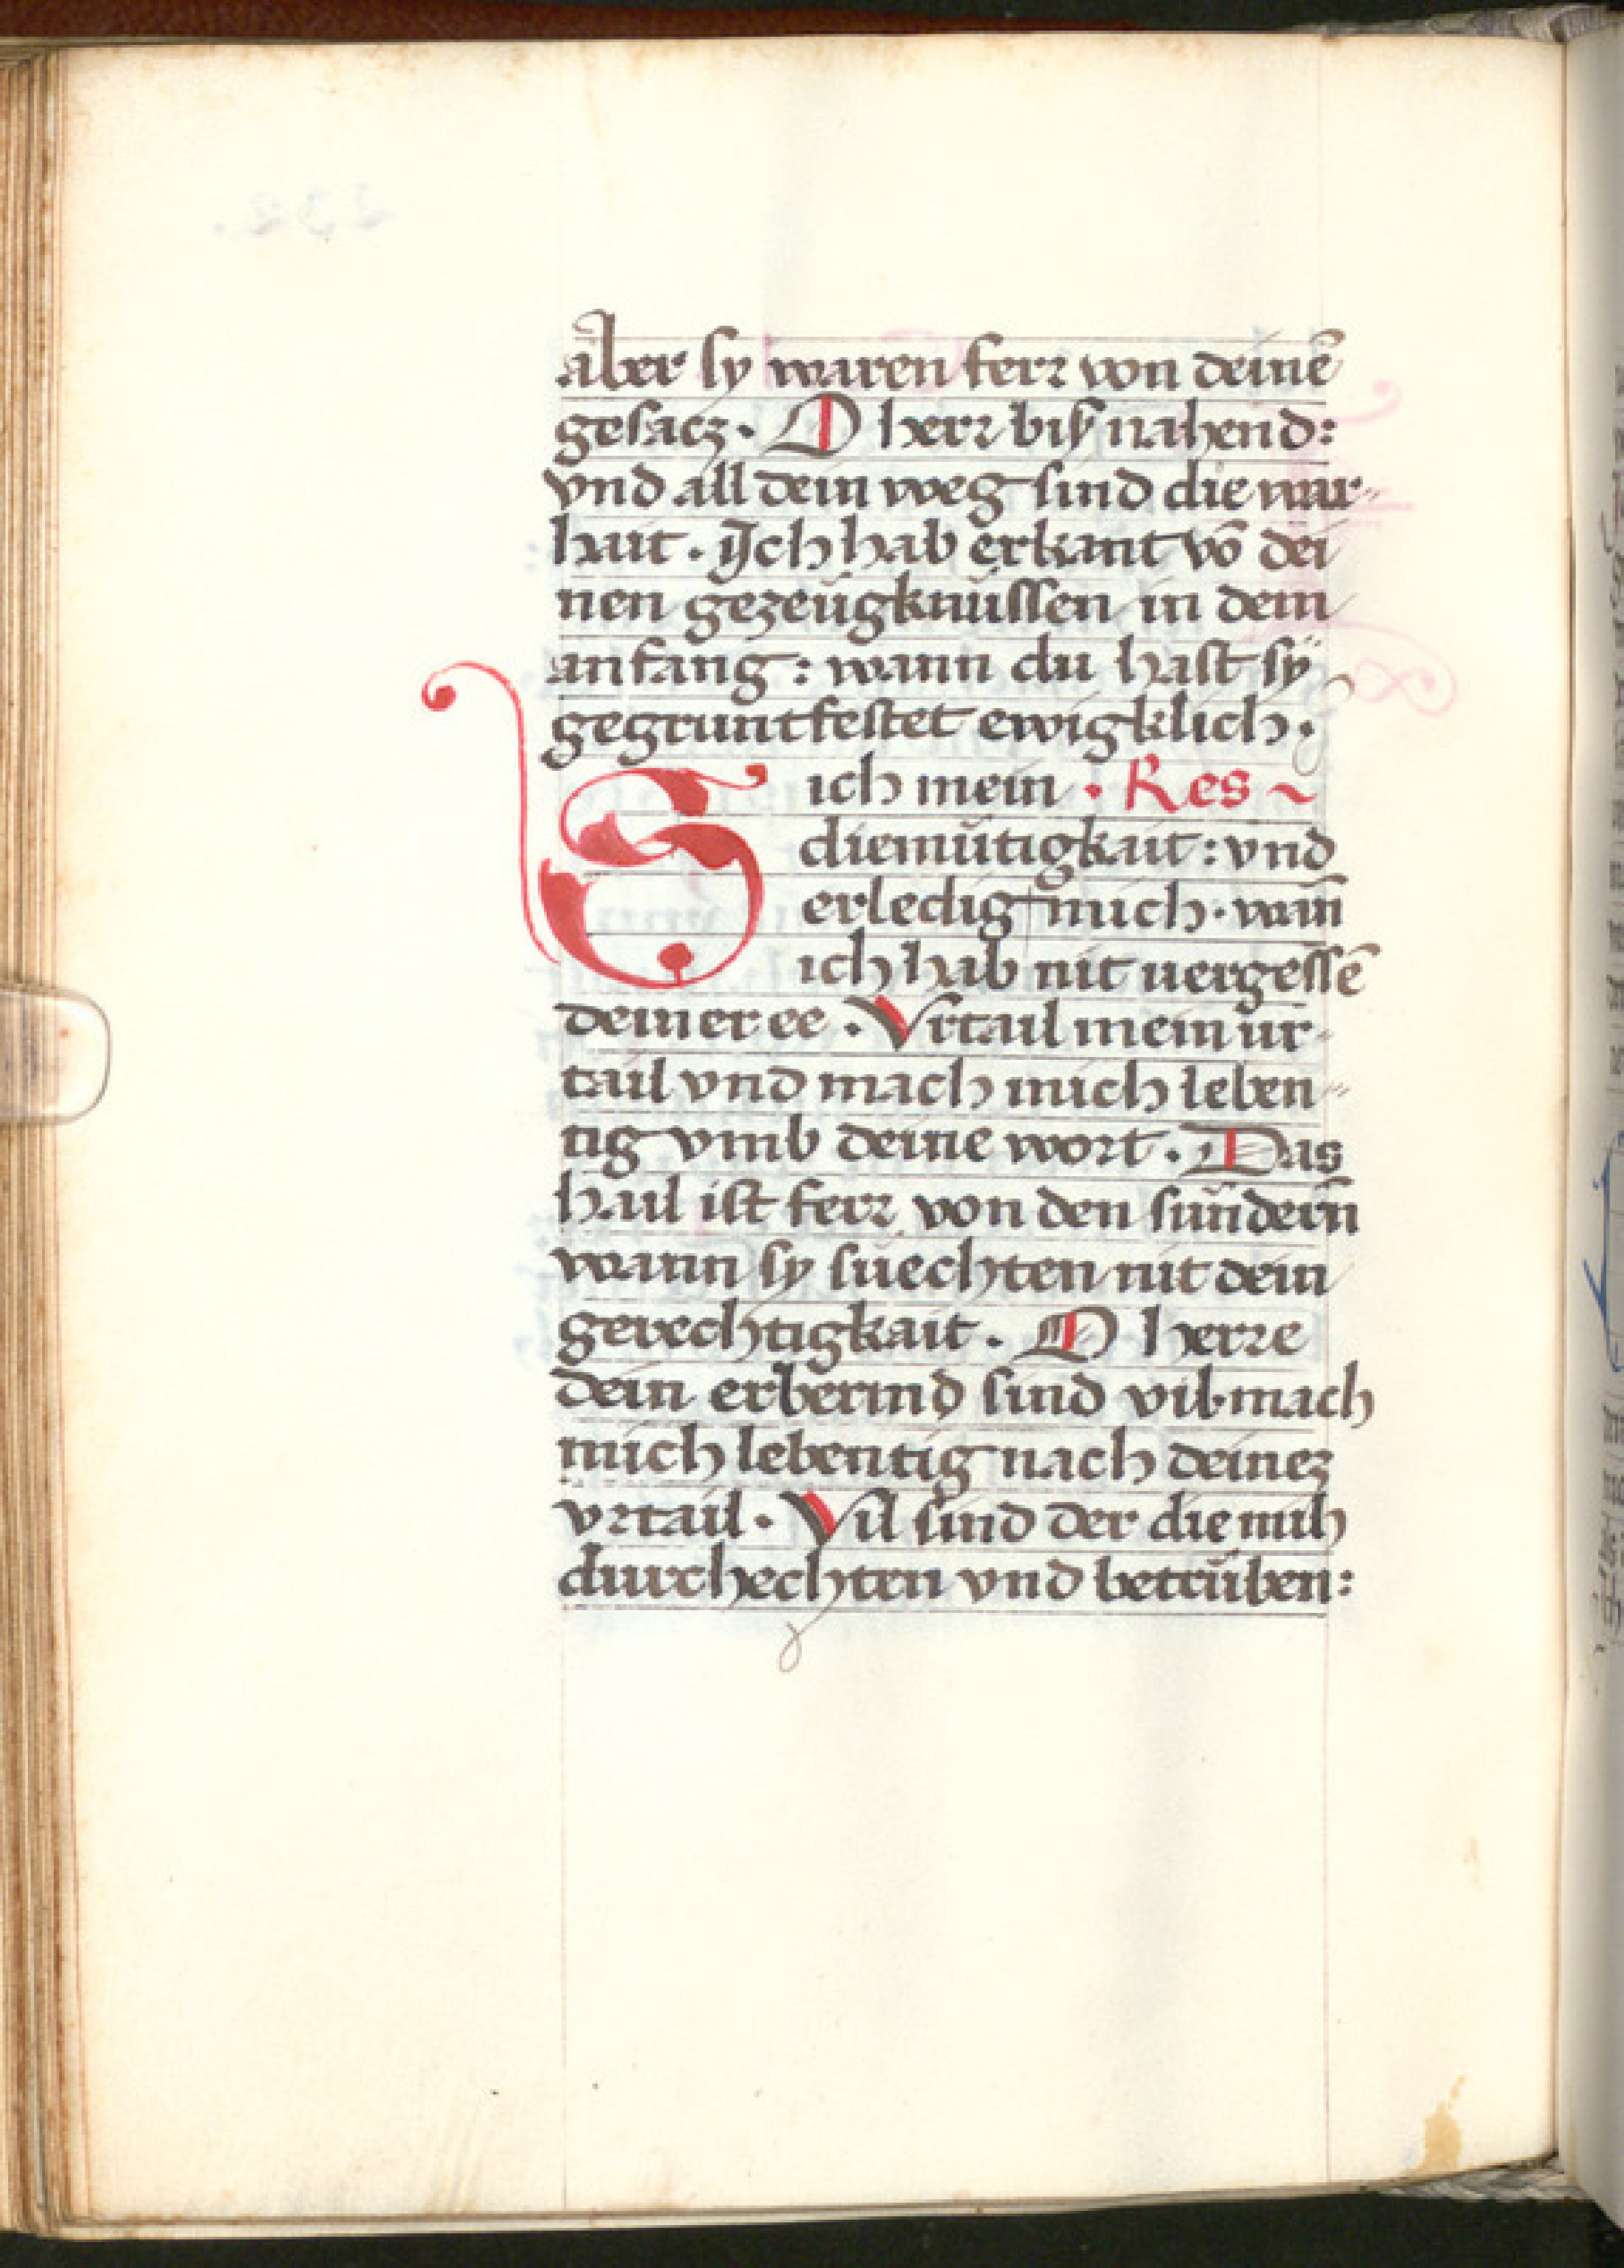 aber sy waren ferr von deinē
gesacz · O herr bis nahend:
vnd all dein weg sind die war-
hait · Ich hab erkant vō dei
nen gezeügknüssen in dem
anfang: wann du hast sy
gegruntfestet ewigklich ·
Sich mein · Res ~
diemütigkait: vnd
erledig mich · wañ
ich hab nit uergessē
deiner ee · Vrtail mein ur-
tail vnd mach mich leben-
tig vmb deine wort · Das
hail ist ferr von den sündern̄
wann sy süechten nit dein
gerechtigkait · O herre
dein erbermd sind vil· mach
mich lebentig nach deinez
vrtail · Vil sind der die mih
durchechten vnd betrüben: